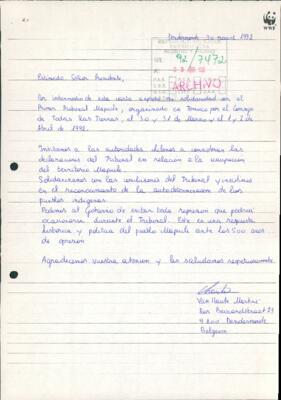 Dendermonde 30 maart 1992
WWF
92/7472
ARCHIVO
Estimado Señor Presidente,
Por intermedio de esta carta expreso mi solidaridad con el
Primer Tribunal Mapuche, organizado en Temuco por el Consejo
de Todas las Tierras, el 30 y 31 de Marzo y el 1 y 2 de
Abril de 1992.
Invitamos a las autoridades chilenas a considerar las
declaraciones del Tribunal en relación a la usurpación
del territorio Mapuche.
Solidarizamos con las conclusiones del Tribunal y insistimos
en el reconocimiento de la autodeterminación de los
pueblos indígenas.
Pedimos al Gobierno de evitar toda represion que podría
ocasionarse durante el Tribunal. Este es una respuesta
historica y politica del pueblo Mapuche ante los 500 años
de opresión
Agradecemos vuestra atencion y les saludamos respetuosamente.
Van Haute Martine
9200 Dendermonde
Belgium